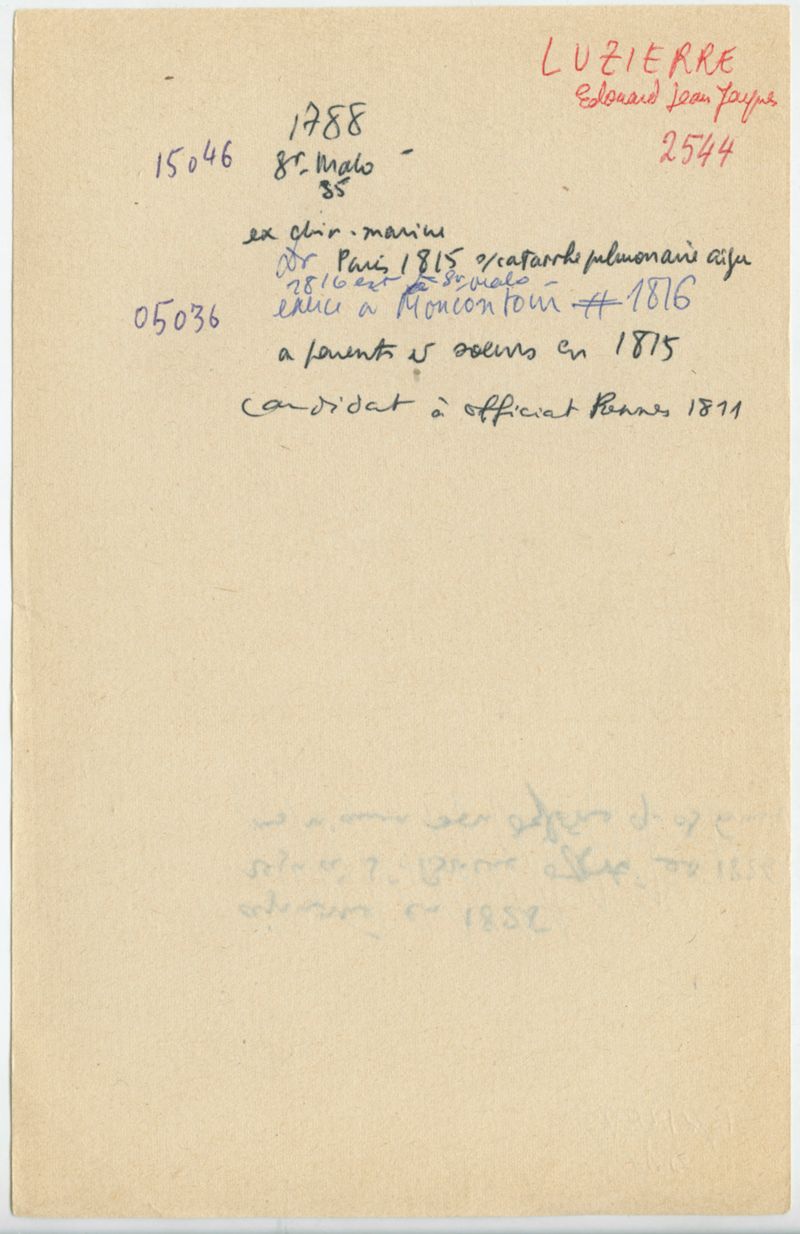 LUZIERRE
Edouard Jean Jacques
2544
1788
15046
St-Malo -
35
ex chir. marine
Dr Paris 1815 s/catarrhe pulmonaire aigu
1816 est à St-Malo
05036
exerce à Moncontour # 1816
a parents et soeurs en 1815
candidat à officiat Rennes 1811